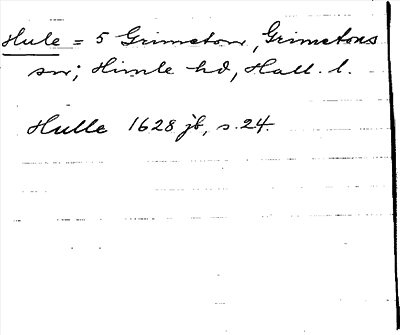 Hule = 5 Grimeton, Grimetons
sn; Himle hd, Hall. l.
Hulle 1628 jb, s. 24.